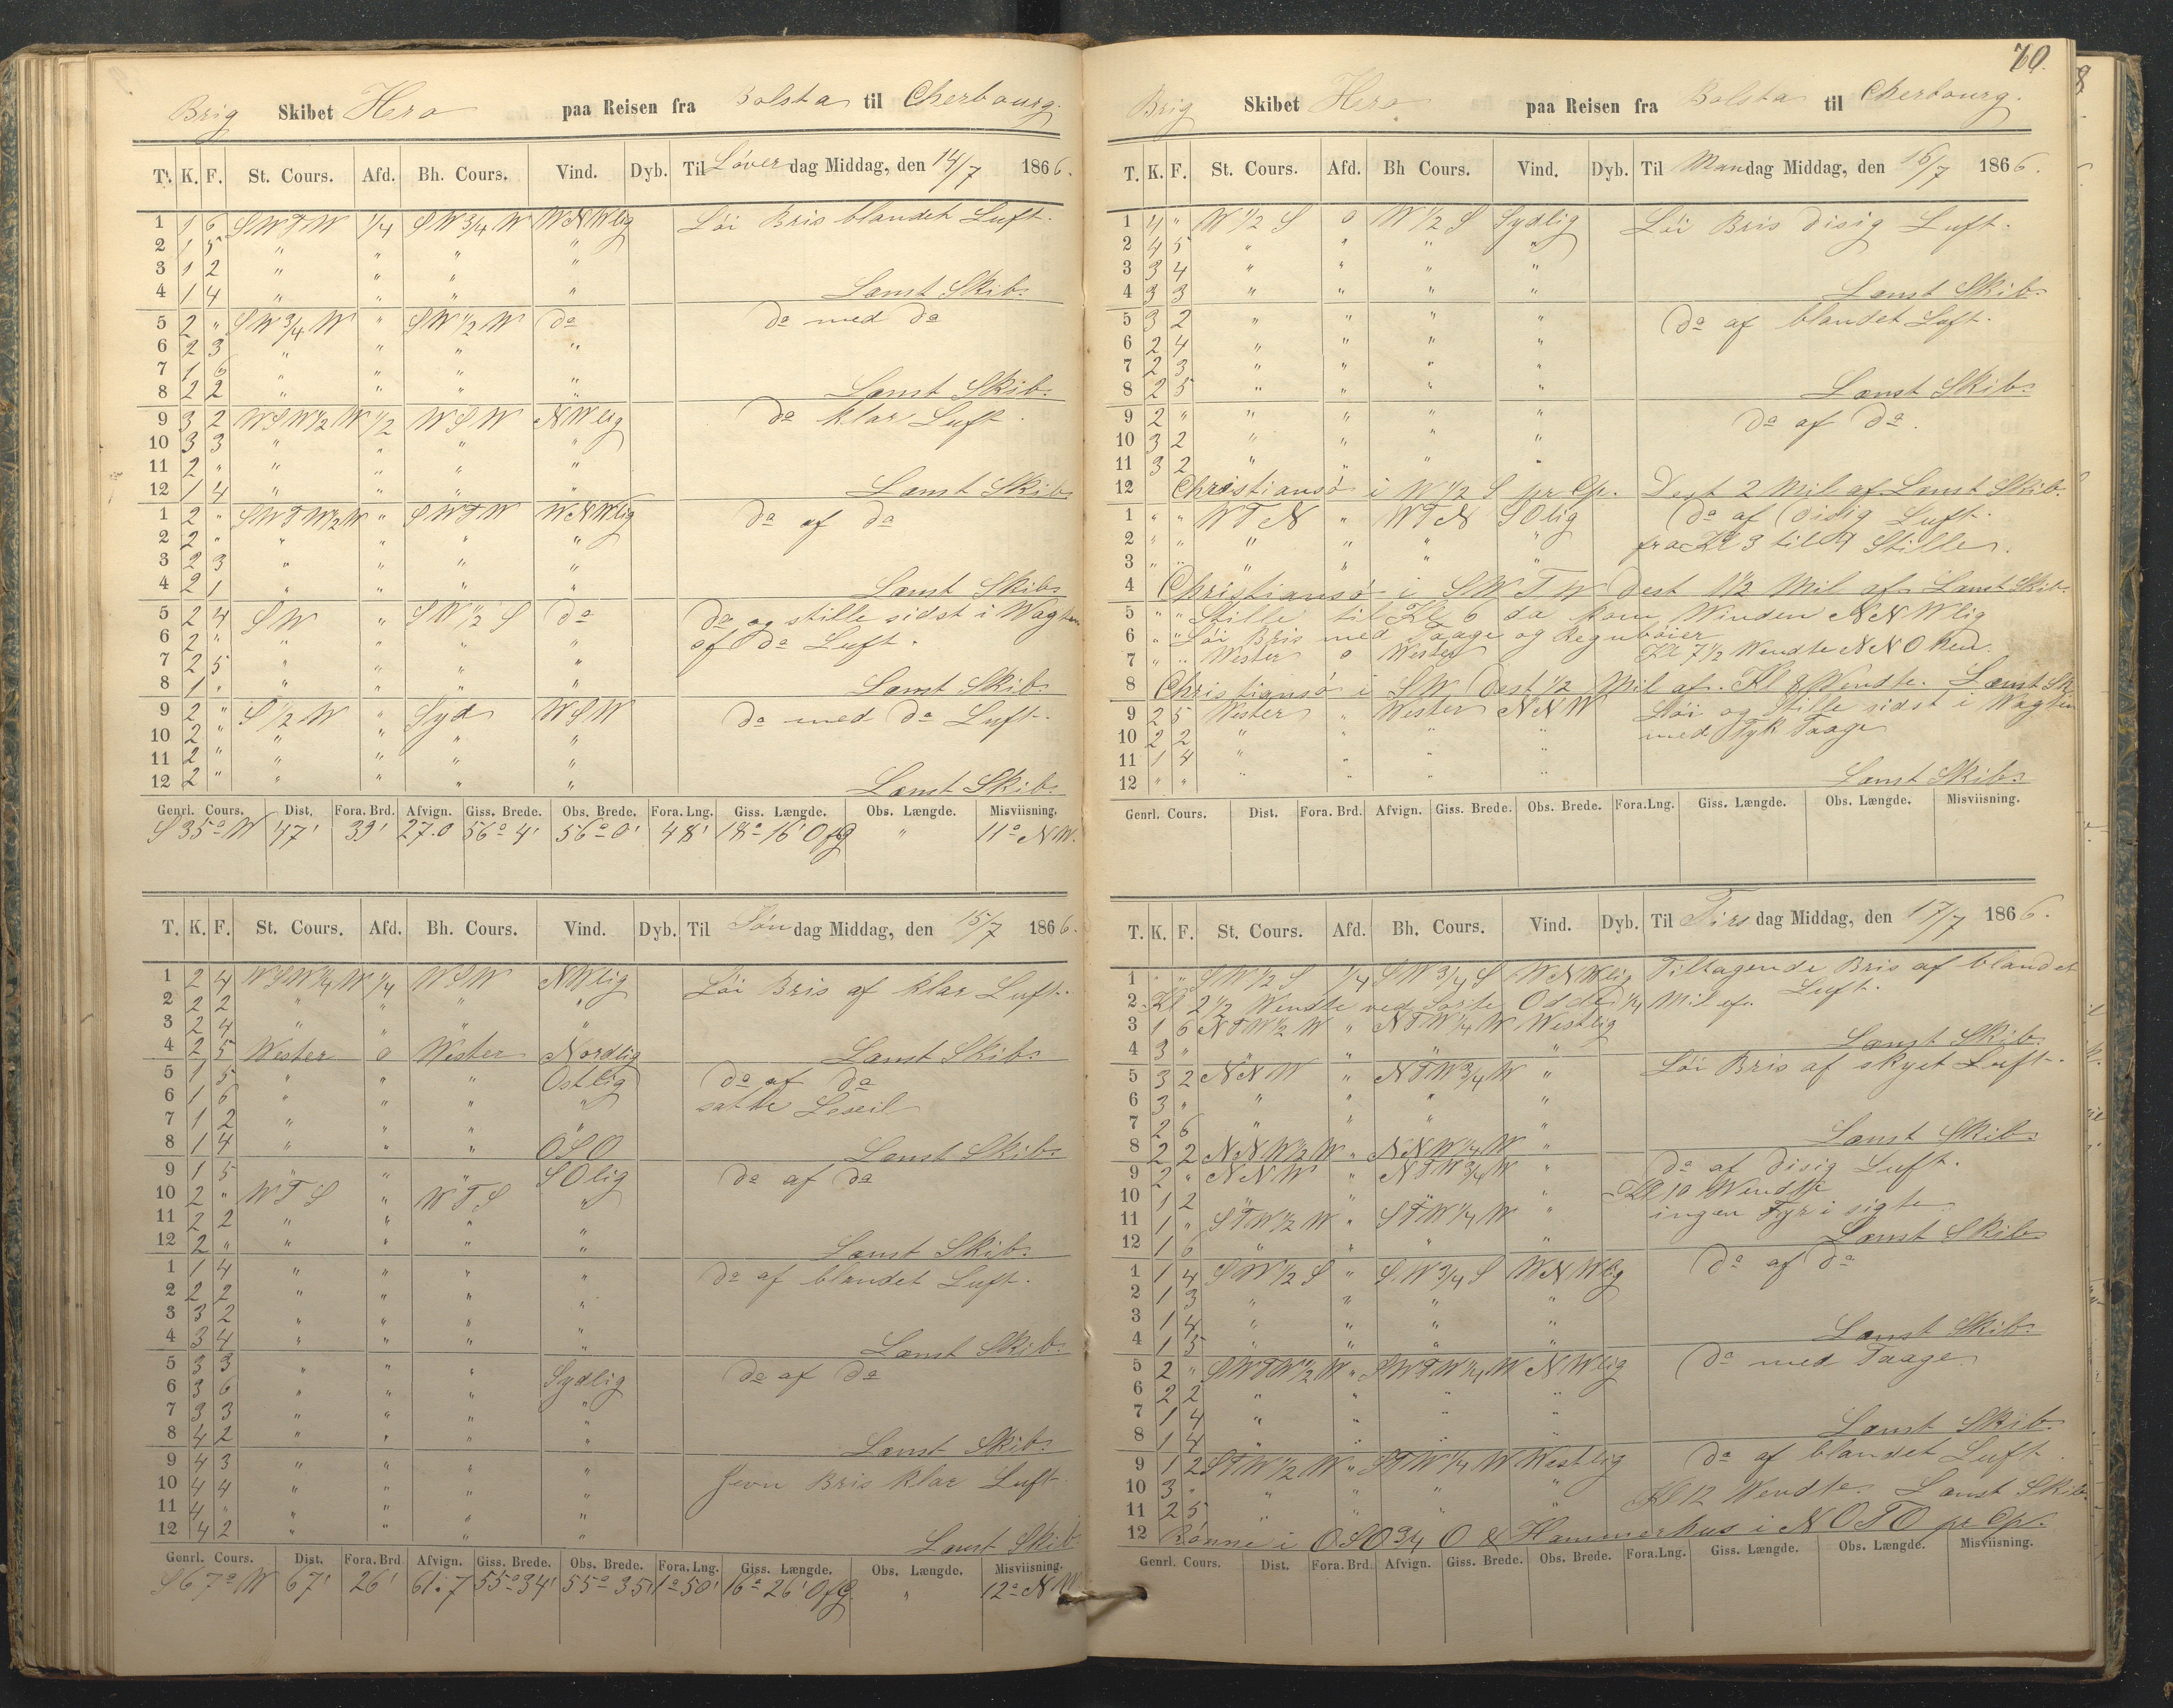 Brig Skibet Hero paa Reisen fra Bolsta til Cherbourg.
T. K. F. St. Cours. Afd. Bh. Cours. Vind. Dyb. Til Löver dag Middag, den 14/7 1866.
1 1 6 SWTW 1/4 SW 3/4 W WNWlig Löi Bris blandet Luft.
2 1 5 " " " "
3 1 2 " " " "
4 1 4 " " " " Lænst Skib.
5 2 " SW 3/4 W " SW 1/2 W do do med do
6 2 3 " " " "
7 1 6 " " " "
8 2 2 " " " " Lænst Skib.
9 3 2 WSW 1/2 W 1/2 WSW NWlig do klar Luft.
10 3 3 " " " "
11 2 " " " " "
12 1 4 " " " " Lænst Skib
1 2 " SWTW 1/2 W " SWTW WNWlig do af do
2 2 " " " " "
3 2 3 " " " "
4 2 1 " " " " Lænst Skib.
5 2 4 SW " SW 1/2 S do do og stille sidst i Wagten
6 2 " " " " " af do Luft.
7 2 5 " " " "
8 1 " " " " " Lænst Skib.
9 2 " S 1/2 W " Syd WSW do med do Luft.
10 2 " " " " "
11 2 " " " " "
12 2 " " " " " Lænst Skib.
Genrl. Cours. Dist. Fora. Brd. Afvign. Giss. Brede. Obs. Brede. Fora. Lng. Giss. Længde. Obs. Længde. Misviisning.
S 35° W 47' 39' 27.0 56° 4' 56° 0' 48' 18° 16' O fG " 11° NW.
T. K. F. St. Cours. Afd. Bh. Cours. Vind. Dyb. Til Sön dag Middag, den 15/7 1866.
1 2 4 WSW 1/4 W 1/4 WSW NWlig Löi Bris af klar Luft.
2 2 2 " " " "
3 2 4 " " " "
4 2 5 Wester o Wester Nordlig Lænst Skib.
5 1 5 " " " Ostlig do af do
6 1 6 " " " " satte Leseil
7 1 2 " " " "
8 1 4 " " " OSO Lænst Skib.
9 1 5 " " " SOlig do af do
10 2 " WTS " WTS "
11 2 2 " " " "
12 2 " " " " " Lænst Skib.
1 1 4 " " " " do af blandet Luft.
2 2 2 " " " "
3 3 2 " " " "
4 3 4 " " " " Lænst Skib.
5 3 3 " " " Sydlig do af do
6 3 6 " " " "
7 3 3 " " " "
8 4 2 " " " " Lænst Skib.
9 4 3 " " " " Jevn Bris klar Luft.
10 4 4 " " " "
11 4 " " " " "
12 4 2 " " " " Lænst Skib
Genrl. Cours. Dist. Fora. Brd Afvign. Giss. Brede. Obs. Brede. Fora. Lng. Giss. Længde. Obs. Længde. Misviisning.
S 67° W 67' 26' 61.7 55° 34' 55° 35' 1° 50' 16° 26' O fG " 12° NW
70.
Brig Skibet Hero paa Reisen fra Bolsta til Cherbourg.
T. K. F. St. Cours. Afd. Bh Cours. Vind. Dyb. Til Mandag Middag, den 16/7 1866.
1 4 " W 1/2 S o W 1/2 S Sydlig Löi Bris disig Luft.
2 4 5 " " " "
3 3 4 " " " "
4 3 3 " " " " Lænst Skib.
5 3 2 " " " " do af blandet Luft.
6 2 4 " " " "
7 2 3 " " " "
8 2 5 " " " " Lænst Skib.
9 2 " " " " " do af do.
10 3 2 " " " "
11 3 2 " " " "
12 Christiansö i W 1/2 S pr Cp. Dest 2 Mil af. Lænst Skib.
1 " " WTN " WTN SOlig do af disig Luft.
2 " " " " " " fra Kl 3 til 4 Stille.
3 " " " " "
4 Christiansö i SWTW Dest 1 1/2 Mil af. Lænst Skib.
5 " " Stille til Kl 6 da kom Winden NNWlig
6 " " Löi Bris med Taage og Regnböier
7 " " Wester o Wester Kl 7 1/2 Wendte NNO hen.
8 Christiansö i SW Dest 1/2 Mil af. Kl 8 Wendte. Lænst Sk
9 2 5 Wester " Wester NNW Löi og Stille sidst i Wagten
10 2 2 " " " " med Tyk Taage
11 1 4 " " " "
12 " " " " " " Lænst Skib.
Genrl. Cours. Dist. Fora. Brd. Afvign. Giss. Brede. Obs. Brede. Fora.Lng. Giss. Længde. Obs. Længde. Misviisning.
T. K. F. St. Cours. Afd. Bh. Cours. Vind. Dyb. Til Tirs dag Middag, den 17/7 1866.
1 " " SW 1/2 S 1/4 SW 3/4 S WNWlig Tiltagende Bris af blandet
2 Kl 2 1/2 Wendte ved Sorte Odde 1/4 Mil af. Luft.
3 1 6 NTW 1/2 W " NTW 1/4 W Westlig
4 3 " " " " " Lænst Skib.
5 3 2 NNW " NTW 3/4 W " Löi Bris af skyet Luft.
6 3 " " " " "
7 2 6 " " " "
8 2 2 NNW 1/2 W " NNW 1/4 W " Lænst Skib.
9 2 " NNW " NTW 3/4 W " do af disig Luft.
10 1 2 " " " " Kl 10 Wendte
11 1 " STW 1/2 W " STW 1/4 W " ingen Fyr i sigte
12 1 6 " " " " Lænst Skib
1 1 4 SW 1/2 S " SW 3/4 S WNWlig do af do
2 1 3 " " " "
3 1 4 " " " "
4 1 5 " " " " Lænst Skib.
5 2 " SWTW 1/2 W " SWTW 1/4 W NWlig do med Taage
6 2 2 " " " "
7 1 4 " " " "
8 1 4 " " " " Lænst Skib
9 1 2 STW 1/2 W " STW 1/4 W Westlig do af blandet Luft.
10 3 " " " " " Kl 12 Wendte. Lænst Skib.
11 2 5 " " " "
12 Rönne i OSO 3/4 O & Hammerhus i NOTO pr Cp.
Genrl. Cours. Dist. Fora. Brd. Afvign. Giss. Brede. Obs. Brede. Fora.Lng. Giss. Længde. Obs. Længde. Misviisning.